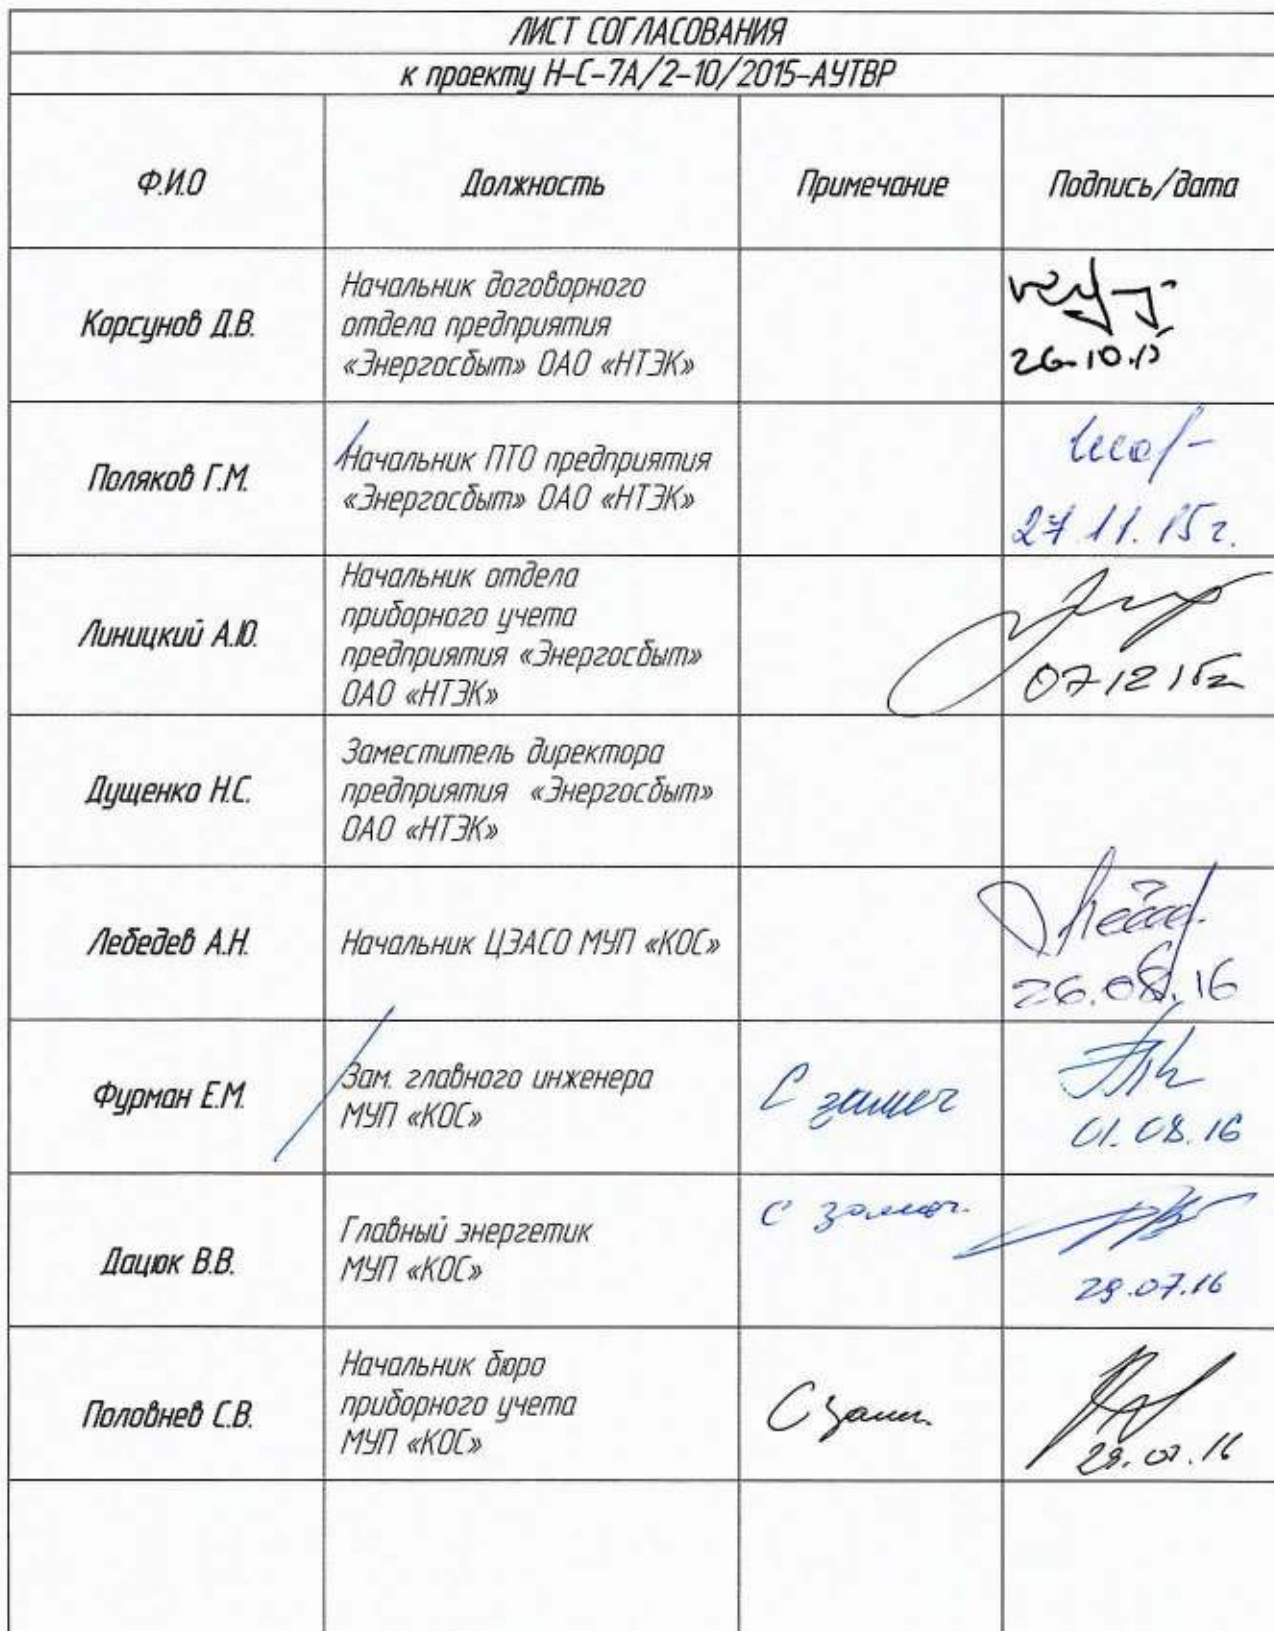 ЛИСТ СОГЛАСОВАНИЯ
к проекту Н-С-7А/2-10/2015-АУТВР
Ф.И.О
Должность
Примечание
Подпись/дата
Корсунов Д.В.
Начальник договорного
отдела предприятия
«Энергосбыт» ОАО «НТЭК»
26.10.15
Поляков Г.М.
Начальник ПТО предприятия
«Энергосбыт» ОАО «НТЭК»
27.11.15г.
Линицкий А.Ю.
Начальник отдела
приборного учета
предприятия «Энергосбыт»
ОАО «НТЭК»
07 12 15г
Дущенко Н.С.
Заместитель директора
предприятия «Энергосбыт»
ОАО «НТЭК»
Лебедев А.Н.
Начальник ЦЭАСО МУП «КОС»
26.08.16
Фурман Е.М.
Зам. главного инженера
МУП «КОС»
С замеч
01.08.16
Дацюк В.В.
Главный энергетик
МУП «КОС»
С замеч.
29.07.16
Половнев С.В.
Начальник бюро
приборного учета
МУП «КОС»
С замеч.
29.07.16